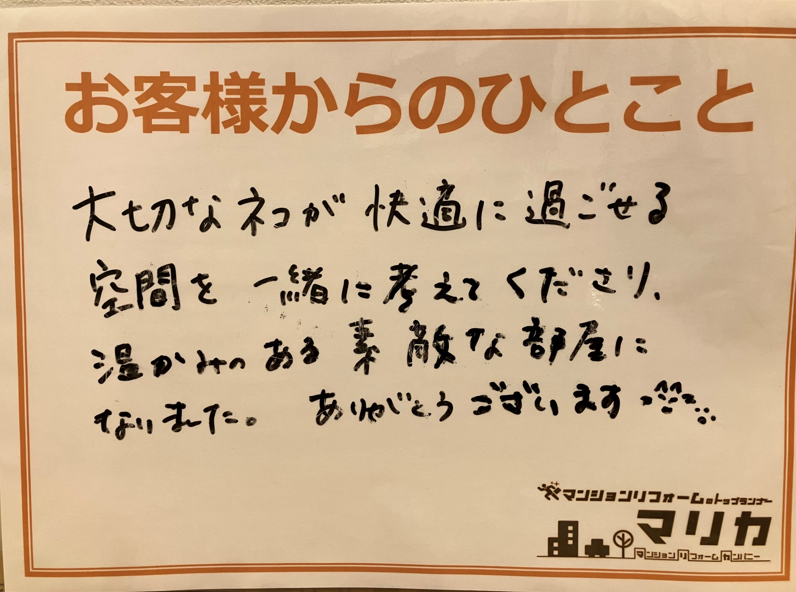 お客様からのひとこと
大切なネコが快適に過ごせる
空間を一緒に考えてくださり、
温かみのある素敵な部屋に
なりました。 ありがとうございます
マンションリフォームのトップランナー
マリカ
マンションリフォームカンパニー